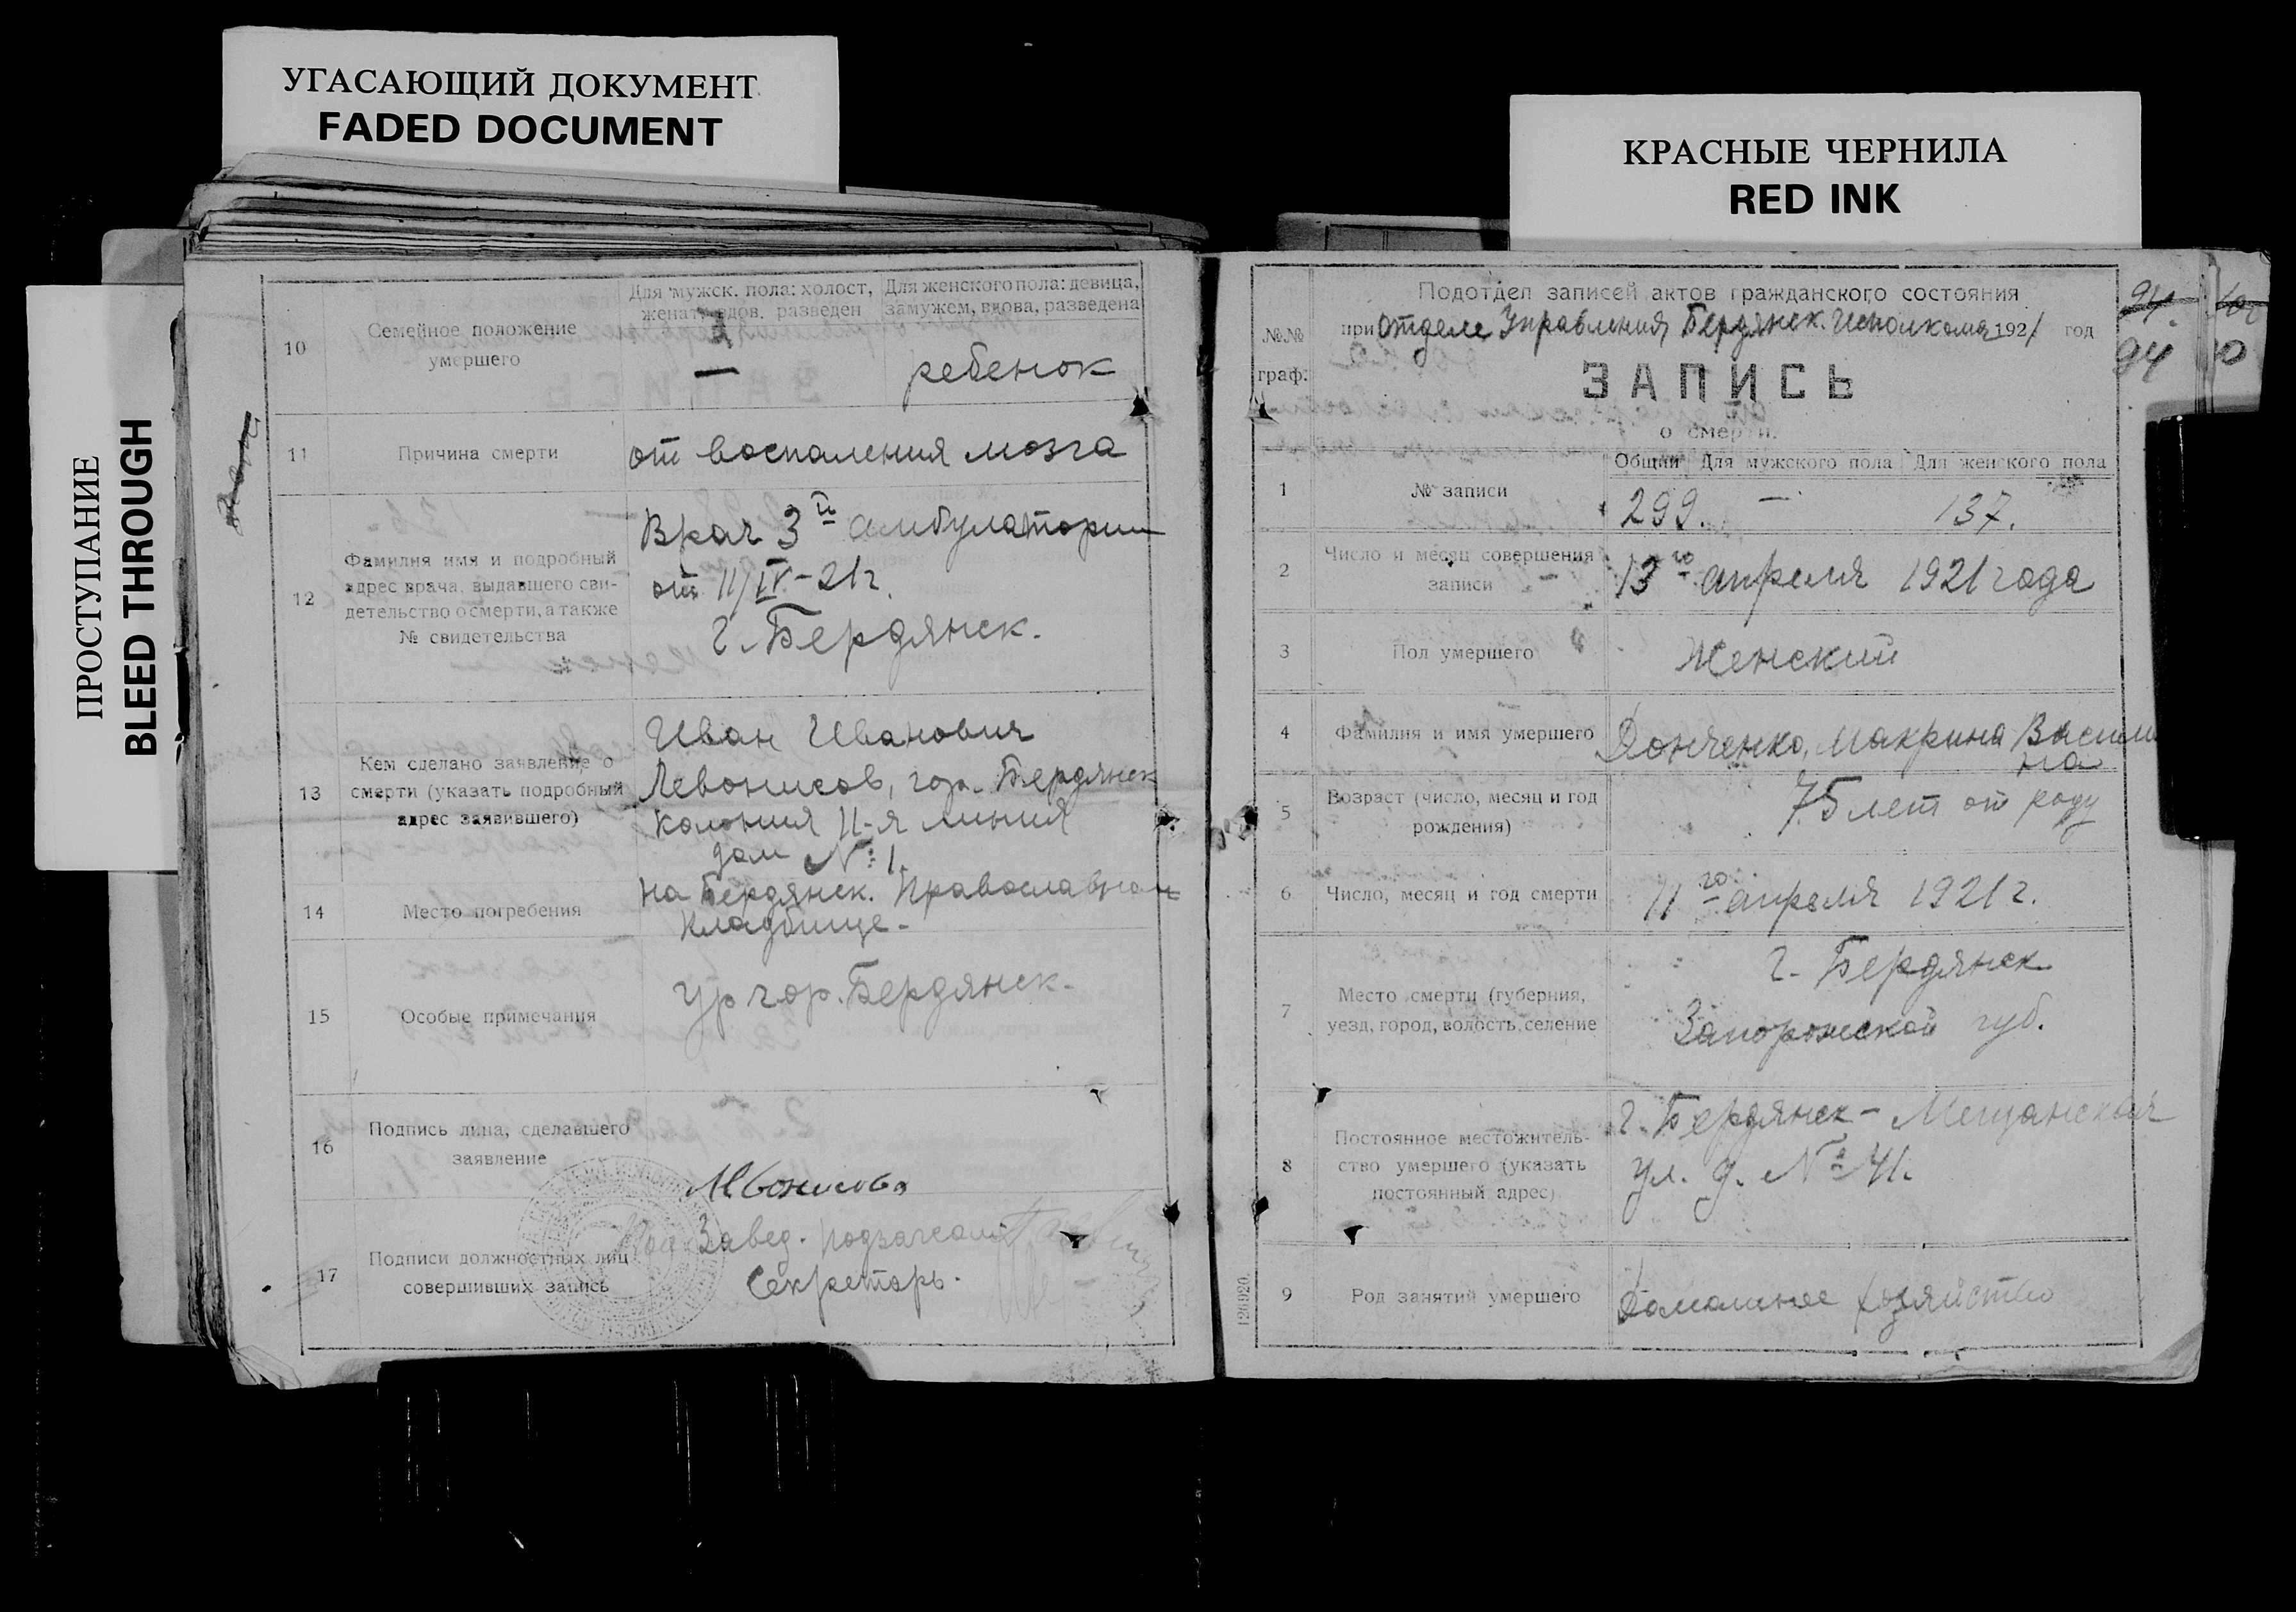 УГАСАЮЩИЙ ДОКУМЕНТ
FADED DOCUMENT
КРАСНЫЕ ЧЕРНИЛА
RED INK
ПРОСТУПАНИЕ
BLEED THROUGH
10
Семейное положение
умершего
Для мужск. пола: холост,
женат, вдов. разведен
Для женского пола: девица,
замужем, вдова, разведена
—
ребенок
11
Причина смерти
от воспаления мозга
12
Фамилия имя и подробный
адрес врача, выдавшего сви-
детельство о смерти, а также
№ свидетельства
Врач 3й амбулатории
от 11/IV-21г.
г. Бердянск.
13
Кем сделано заявление о
смерти (указать подробный
адрес заявившего)
Иван Иванович
Левонисов, гор. Бердянск
колония 11-я линия
дом № 1.
14
Место погребения
на Бердянск. Православном
кладбище.
15
Особые примечания
Ур гор. Бердянск.
16
Подпись лица, сделавшего
заявление
17
Подписи должностных лиц
совершивших запись
Завед. подзагсом
Секретарь.
№№
граф.
Подотдел записей актов гражданского состояния
при отделе Управления Бердянск. Исполкома 1921 год
ЗАПИСЬ
о смерти.
94.
94
1
№ записи
Общий
Для мужского пола
Для женского пола
299.
—
137.
2
Число и месяц совершения
записи
13го апреля 1921 года
3
Пол умершего
Женский
4
Фамилия и имя умершего
Донченко, Макрина Васили
на
5
Возраст (число, месяц и год
рождения)
75 лет от роду
6
Число, месяц и год смерти
11го апреля 1921 г.
7
Место смерти (губерния,
уезд, город, волость, селение
г. Бердянск
Запорожской губ.
8
Постоянное местожитель-
ство умершего (указать
постоянный адрес)
г. Бердянск - Мещанская
ул. д. № 41.
9
Род занятий умершего
Домашнее хозяйство
126920.